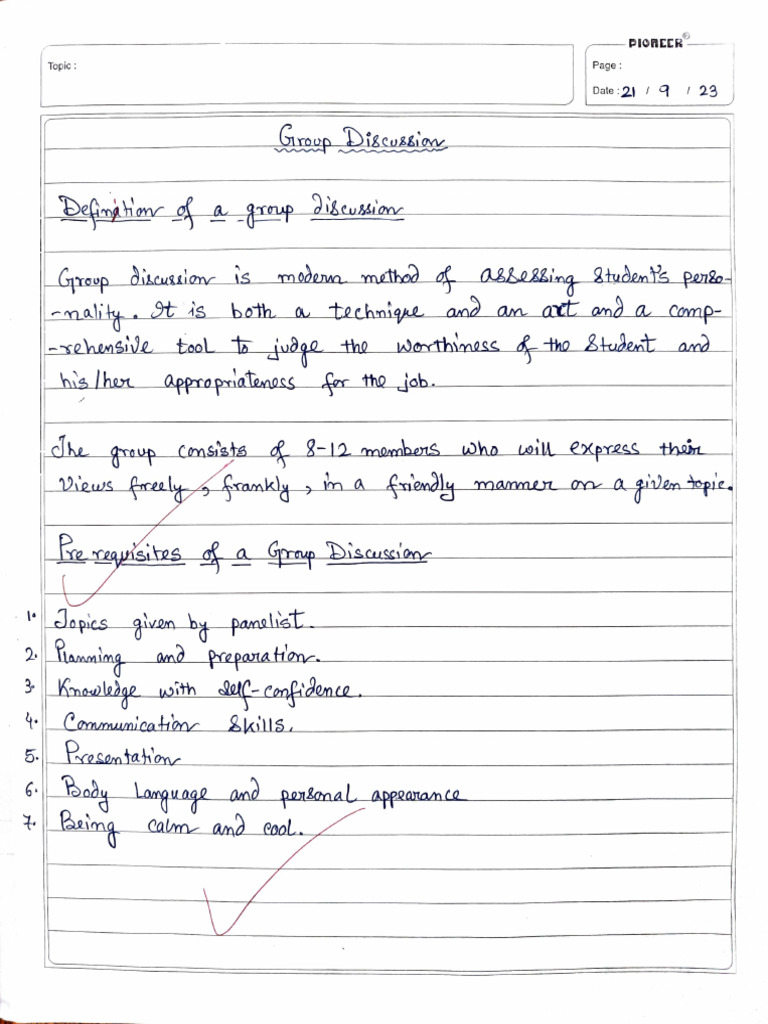 PIONEER®
Topic :
Page :
Date : 21 / 9 / 23
Group Discussion
Definition of a group discussion
Group discussion is modern method of assessing student's perso-
-nality. It is both a technique and an art and a comp-
-rehensive tool to judge the worthiness of the student and
his/her appropriateness for the job.
The group consists of 8-12 members who will express their
views freely, frankly, in a friendly manner on a given topic.
Pre requisites of a Group Discussion
1. Topics given by panelist.
2. Planning and preparation.
3. Knowledge with self-confidence.
4. Communication skills.
5. Presentation
6. Body language and personal appearance
7. Being calm and cool.